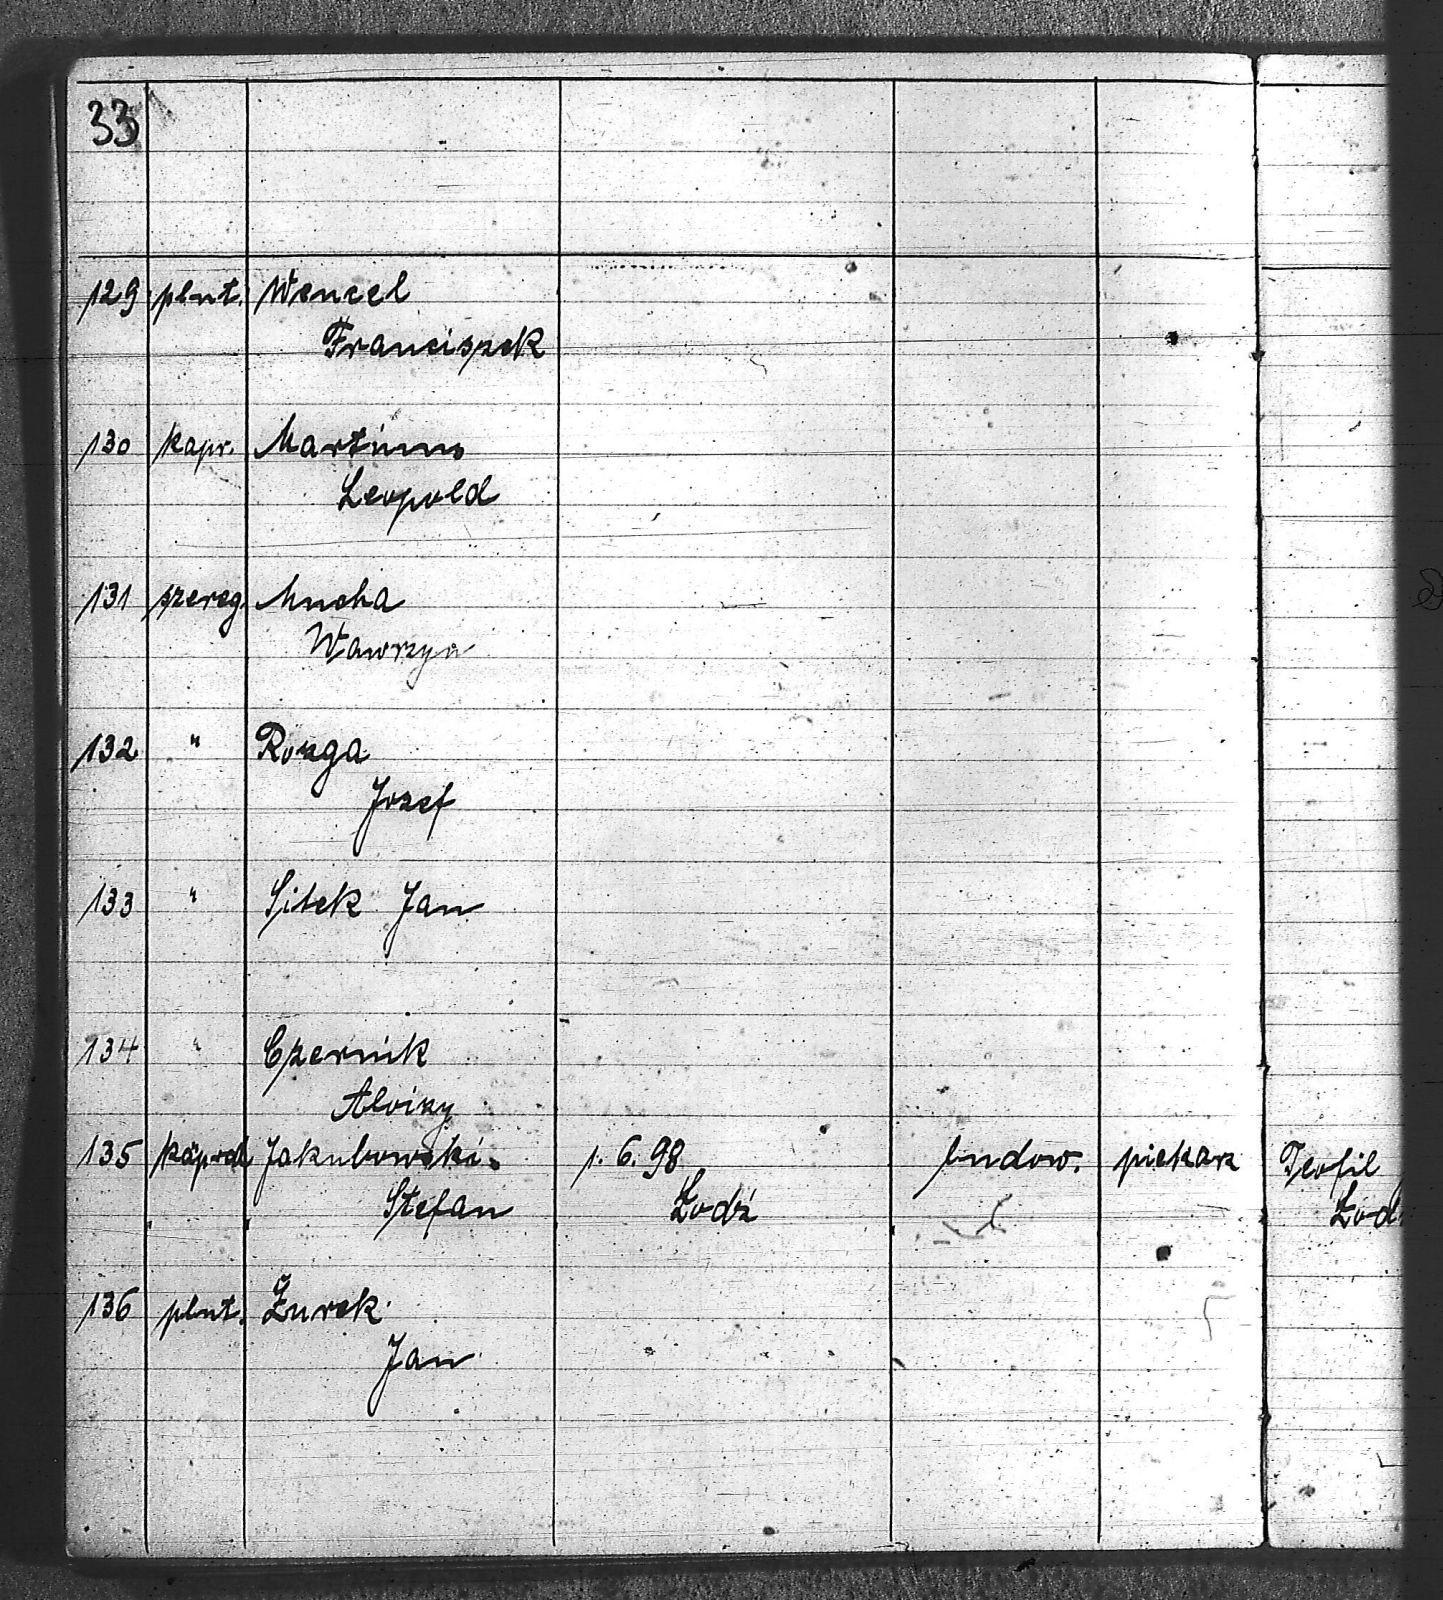 33
129 plut. Wencel
Franciszek
130 kapr. Martinus
Leopold
131 szereg. Mucha
Wawrzyn
132 " Rozga
Jozef
133 " Sitek Jan
134 " Czernik
Aloizy
135 Jakubowski 1. 6. 98 ludow. piekarz Teofil
Stefan Łodź Łod
136 plut. Żurek
Jan